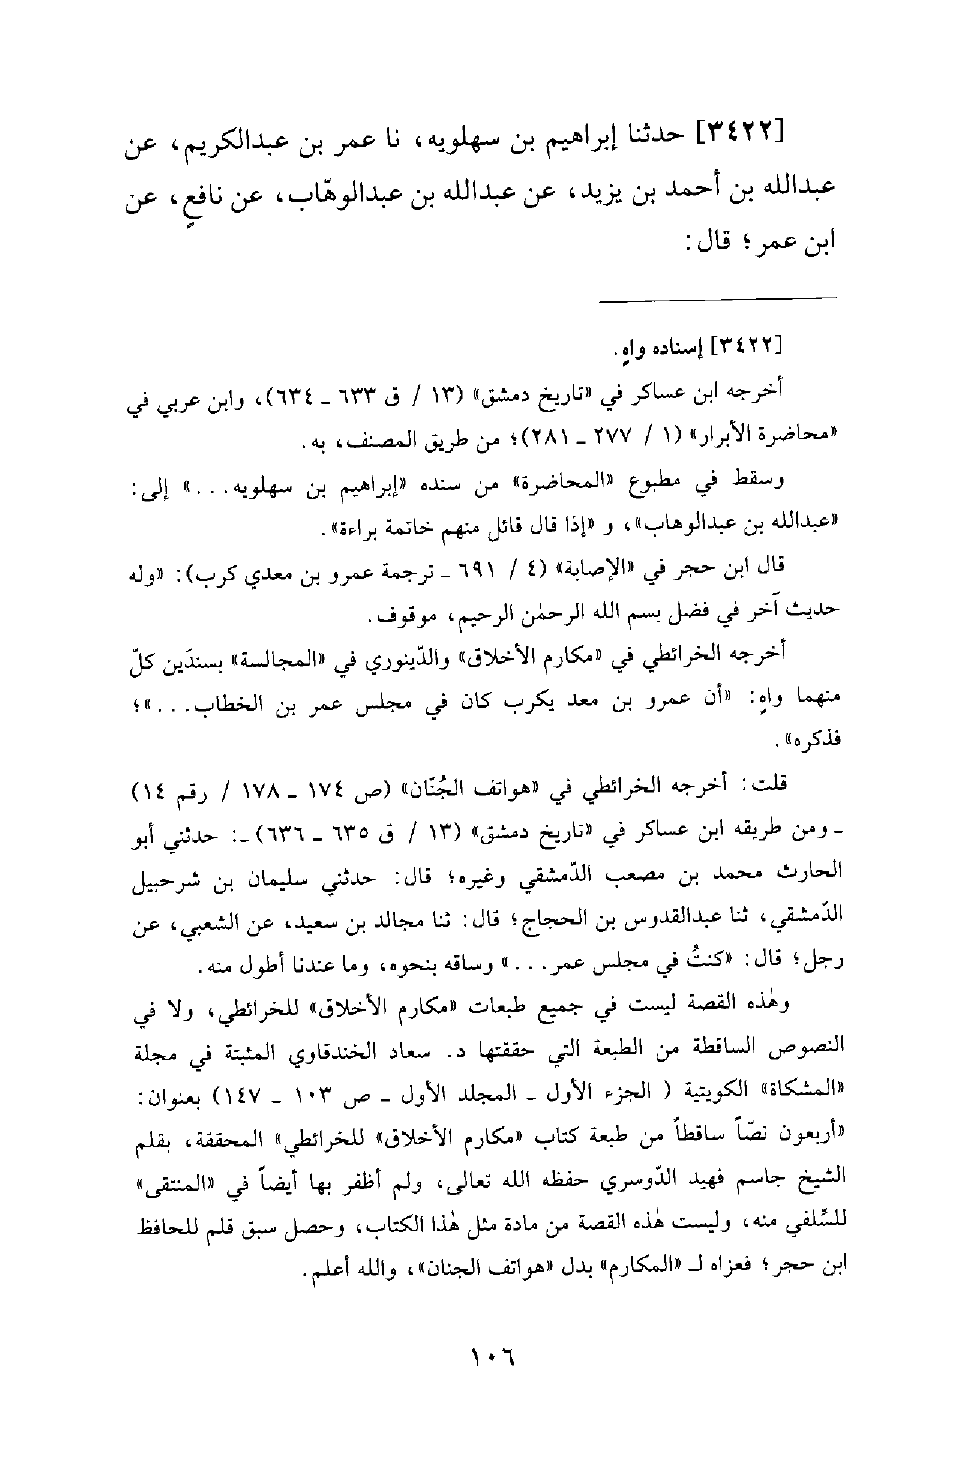 [٣٤٢٢] حدثنا إبراهيم بن سهلويه، نا عمر بن عبدالكريم، عن
عبدالله بن أحمد بن يزيد، عن عبدالله بن عبدالوهّاب، عن نافعٍ، عن
ابن عمر؛ قال:
[٣٤٢٢] إسناده واهٍ.
أخرجه ابن عساكر في «تاريخ دمشق» (١٣ / ق ٦٣٣ ـ ٦٣٤)، وابن عربي في
«محاضرة الأبرار» (١ / ٢٧٧ ـ ٢٨١)؛ من طريق المصنف، به.
وسقط في مطبوع «المحاضرة» من سنده «إبراهيم بن سهلويه...» إلى:
«عبدالله بن عبدالوهاب»، و «إذا قال قائل منهم خاتمة براءة».
قال ابن حجر في «الإصابة» (٤ / ٦٩١ ـ ترجمة عمرو بن معدي كرب): «وله
حديث آخر في فضل بسم الله الرحمٰن الرحيم، موقوف.
أخرجه الخرائطي في «مكارم الأخلاق» والدّينوري في «المجالسة» بسندَين كلّ
منهما واهٍ: «أن عمرو بن معد يكرب كان في مجلس عمر بن الخطاب...»؛
فذكره».
قلت: أخرجه الخرائطي في «هواتف الجُنّان» (ص ١٧٤ ـ ١٧٨ / رقم ١٤)
ـ ومن طريقه ابن عساكر في «تاريخ دمشق» (١٣ / ق ٦٣٥ ـ ٦٣٦) ـ: حدثني أبو
الحارث محمد بن مصعب الدّمشقي وغيره؛ قال: حدثني سليمان بن شرحبيل
الدّمشقي، ثنا عبدالقدوس بن الحجاج؛ قال: ثنا مجالد بن سعيد، عن الشعبي، عن
رجل؛ قال: «كنتُ في مجلس عمر...» وساقه بنحوه، وما عندنا أطول منه.
وهٰذه القصة ليست في جميع طبعات «مكارم الأخلاق» للخرائطي، ولا في
النصوص الساقطة من الطبعة التي حققتها د. سعاد الخندقاوي المثبتة في مجلة
«المشكاة» الكويتية ( الجزء الأول ـ المجلد الأول ـ ص ١٠٣ ـ ١٤٧) بعنوان:
«أربعون نصّاً ساقطاً من طبعة كتاب «مكارم الأخلاق» للخرائطي» المحققة، بقلم
الشيخ جاسم فهيد الدّوسري حفظه الله تعالى، ولم أظفر بها أيضاً في «المنتقى»
للسِّلفي منه، وليست هٰذه القصة من مادة مثل هٰذا الكتاب، وحصل سبق قلم للحافظ
ابن حجر؛ فعزاه لـ «المكارم» بدل «هواتف الجنان»، والله أعلم.
١٠٦